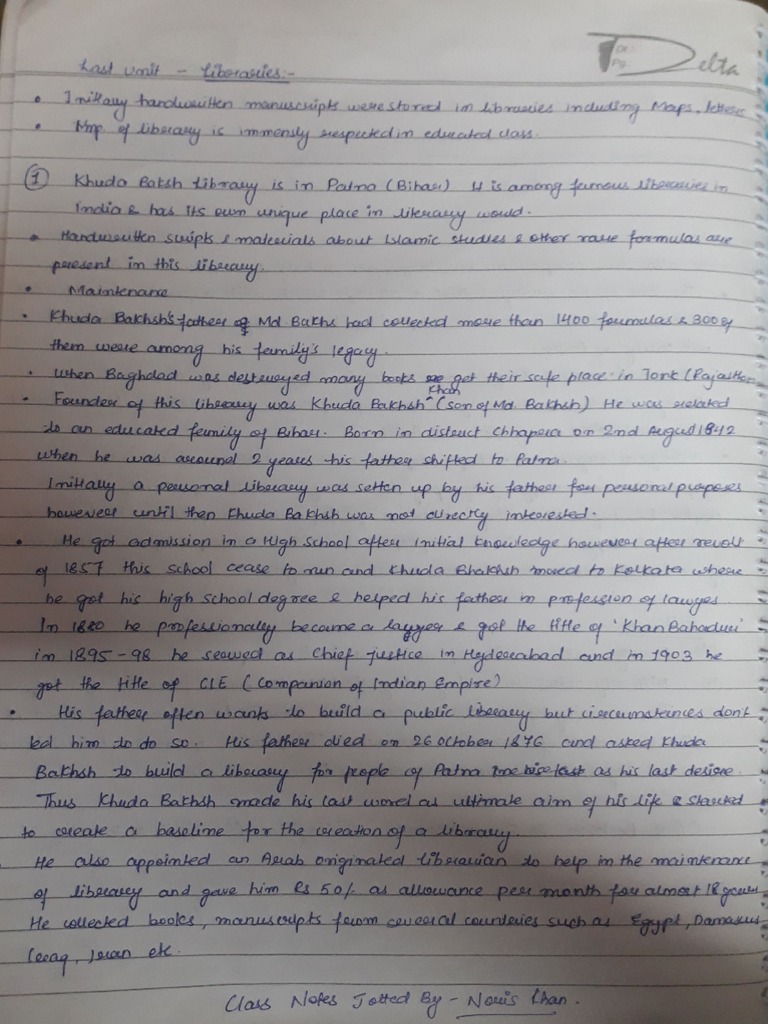 Delta
Dt.:
Pg.:
Last unit - Liberaries:-
• Initially handwritten manuscripts were stored in libraries including Maps, letters
• Imp. of liberary is immensly respected in educated class.
① Khuda Baksh Library is in Patna (Bihar) It is among famous liberaries in
India & has its own unique place in literary world.
• Handwritten scripts & materials about Islamic studies & other rare formulas are
present in this liberary.
• Maintenance
• Khuda Bakhsh's father Md Bakhs had collected more than 1400 formulas & 300 of
them were among his family's legacy.
• When Baghdad was destroyed many books got their safe place in Tonk (Rajasthan
• Founder of this liberary was Khuda Bakhsh Khan (son of Md. Bakhsh) He was related
to an educated family of Bihar. Born in district Chhapra on 2nd August 1842
when he was around 2 years his father shifted to Patna.
Initially a personal liberary was setten up by his father for personal purposes
however until then Khuda Bakhsh was not directly interested.
• He got admission in a High School after initial knowledge however after revolt
of 1857 this school cease to run and Khuda Bhakhsh moved to Kolkata where
he got his high school degree & helped his father in profession of lawyes
In 1880 he professionally became a lawyer & got the title of 'Khan Bahaduri'
in 1895-98 he served as Chief justice in Hyderabad and in 1903 he
got the title of CIE (Companion of Indian Empire)
• His father often wants to build a public liberary but circumstances don't
led him to do so. His father died on 26 October 1876 and asked Khuda
Bakhsh to build a liberary for people of Patna as his last desire.
Thus Khuda Bakhsh made his last word as ultimate aim of his life & started
to create a baseline for the creation of a library.
He also appointed an Arab originated liberarian to help in the maintenance
of liberary and gave him Rs 50/- as allowance per month for almost 18 years
He collected books, manuscripts from several countries such as Egypt, Damascus
Iraq, Iran etc.
Class Notes Jotted By - Novis Khan.